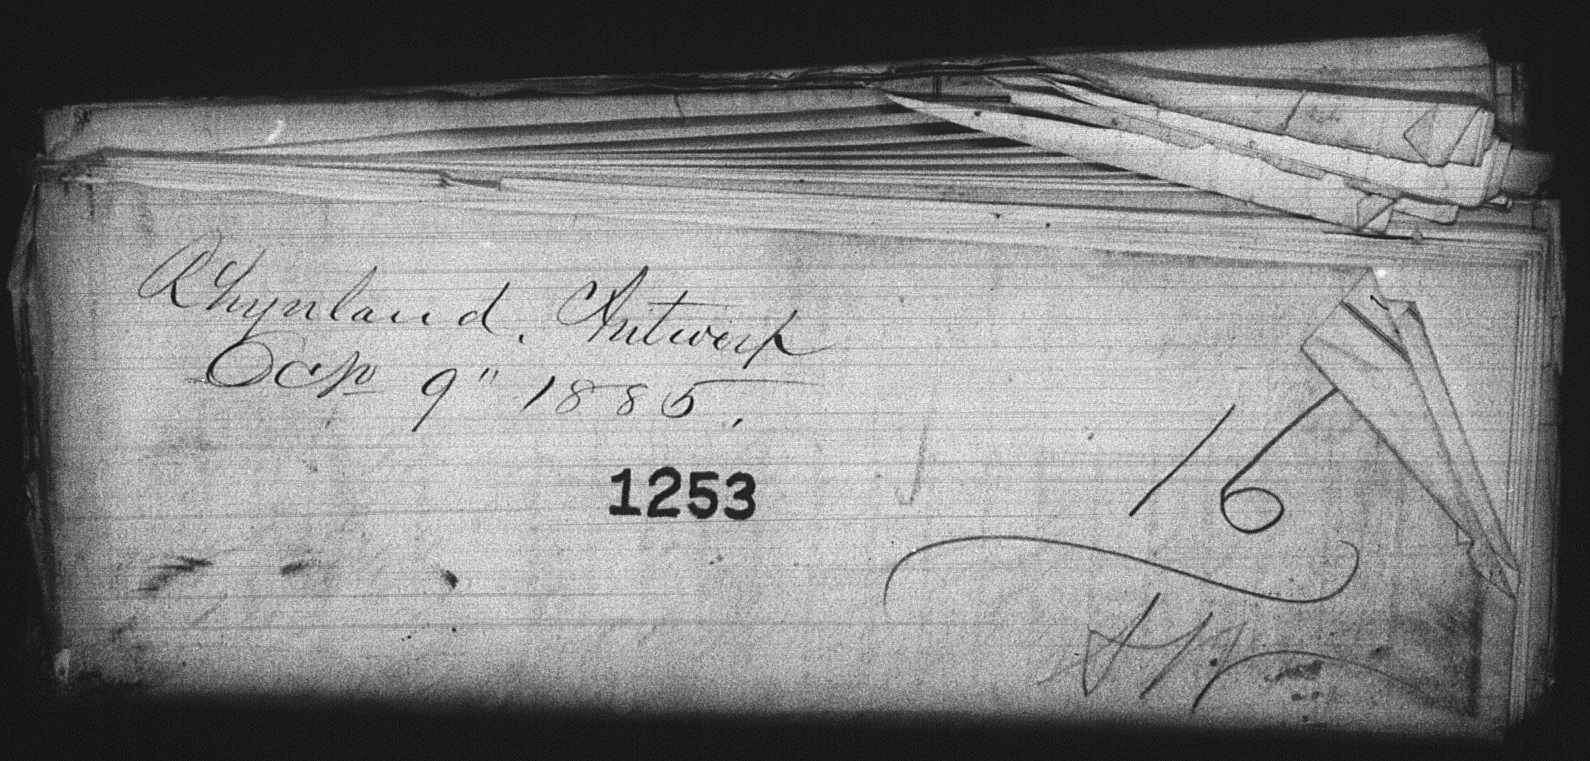 Rhynland. Antwerp
Sep 9" 1885.
1253
16